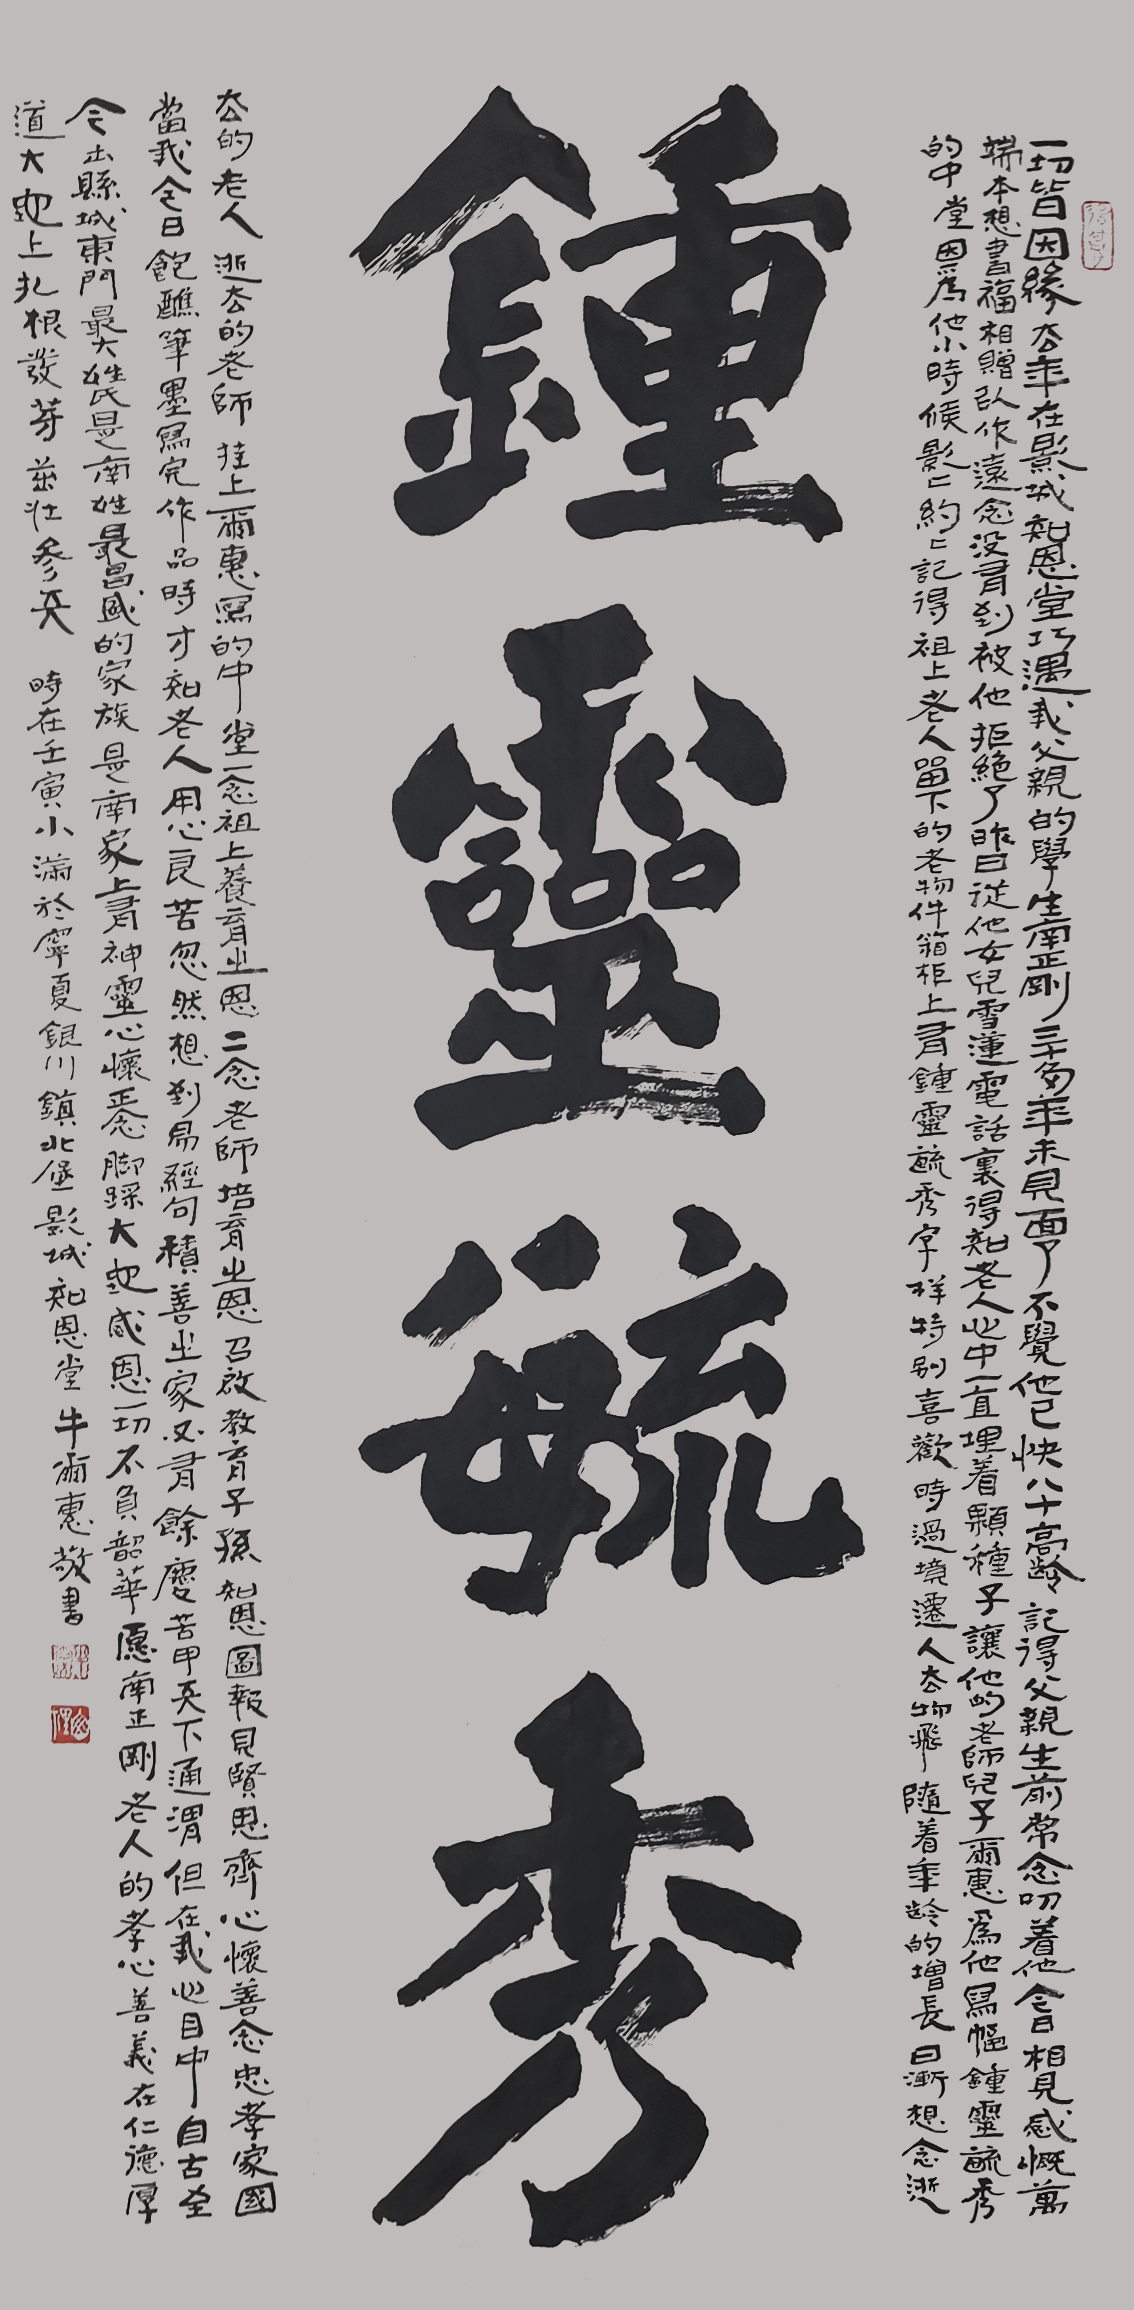 一切皆因緣去年在影城知恩堂巧遇我父親的學生南正剛三十多年未見面了不覺他已快八十高齡記得父親生前常念叨着他今日相見感慨萬
端本想書福相贈以作遠念没有到被他拒絶了昨日從他女兒雪蓮電話裏得知老人心中一直埋着顆種子讓他的老師兒子爾惠爲他寫幅鍾靈毓秀
的中堂因爲他小時候影影約約記得祖上老人留下的老物件箱柜上有鍾靈毓秀字样特别喜歡時過境遷人去物飛隨着年齡的增長日漸想念逝
鍾靈毓秀
去的老人逝去的老師挂上爾惠寫的中堂一念祖上養育之恩二念老師培育之恩召啟教育子孫知恩圖報見賢思齊心懷善念忠孝家國
當我今日飽蘸筆墨寫完作品時才知老人用心良苦忽然想到易經句積善之家必有餘慶苦甲天下通渭但在我心目中自古至
今出縣城東門最大姓氏是南姓最昌盛的家族是南家上有神靈心懷正念脚踩大地感恩一切不負韶華愿南正剛老人的孝心善義在仁德厚
道大地上扎根發芽茁壯參天 時在壬寅小滿於寧夏銀川鎮北堡影城知恩堂牛爾惠敬書